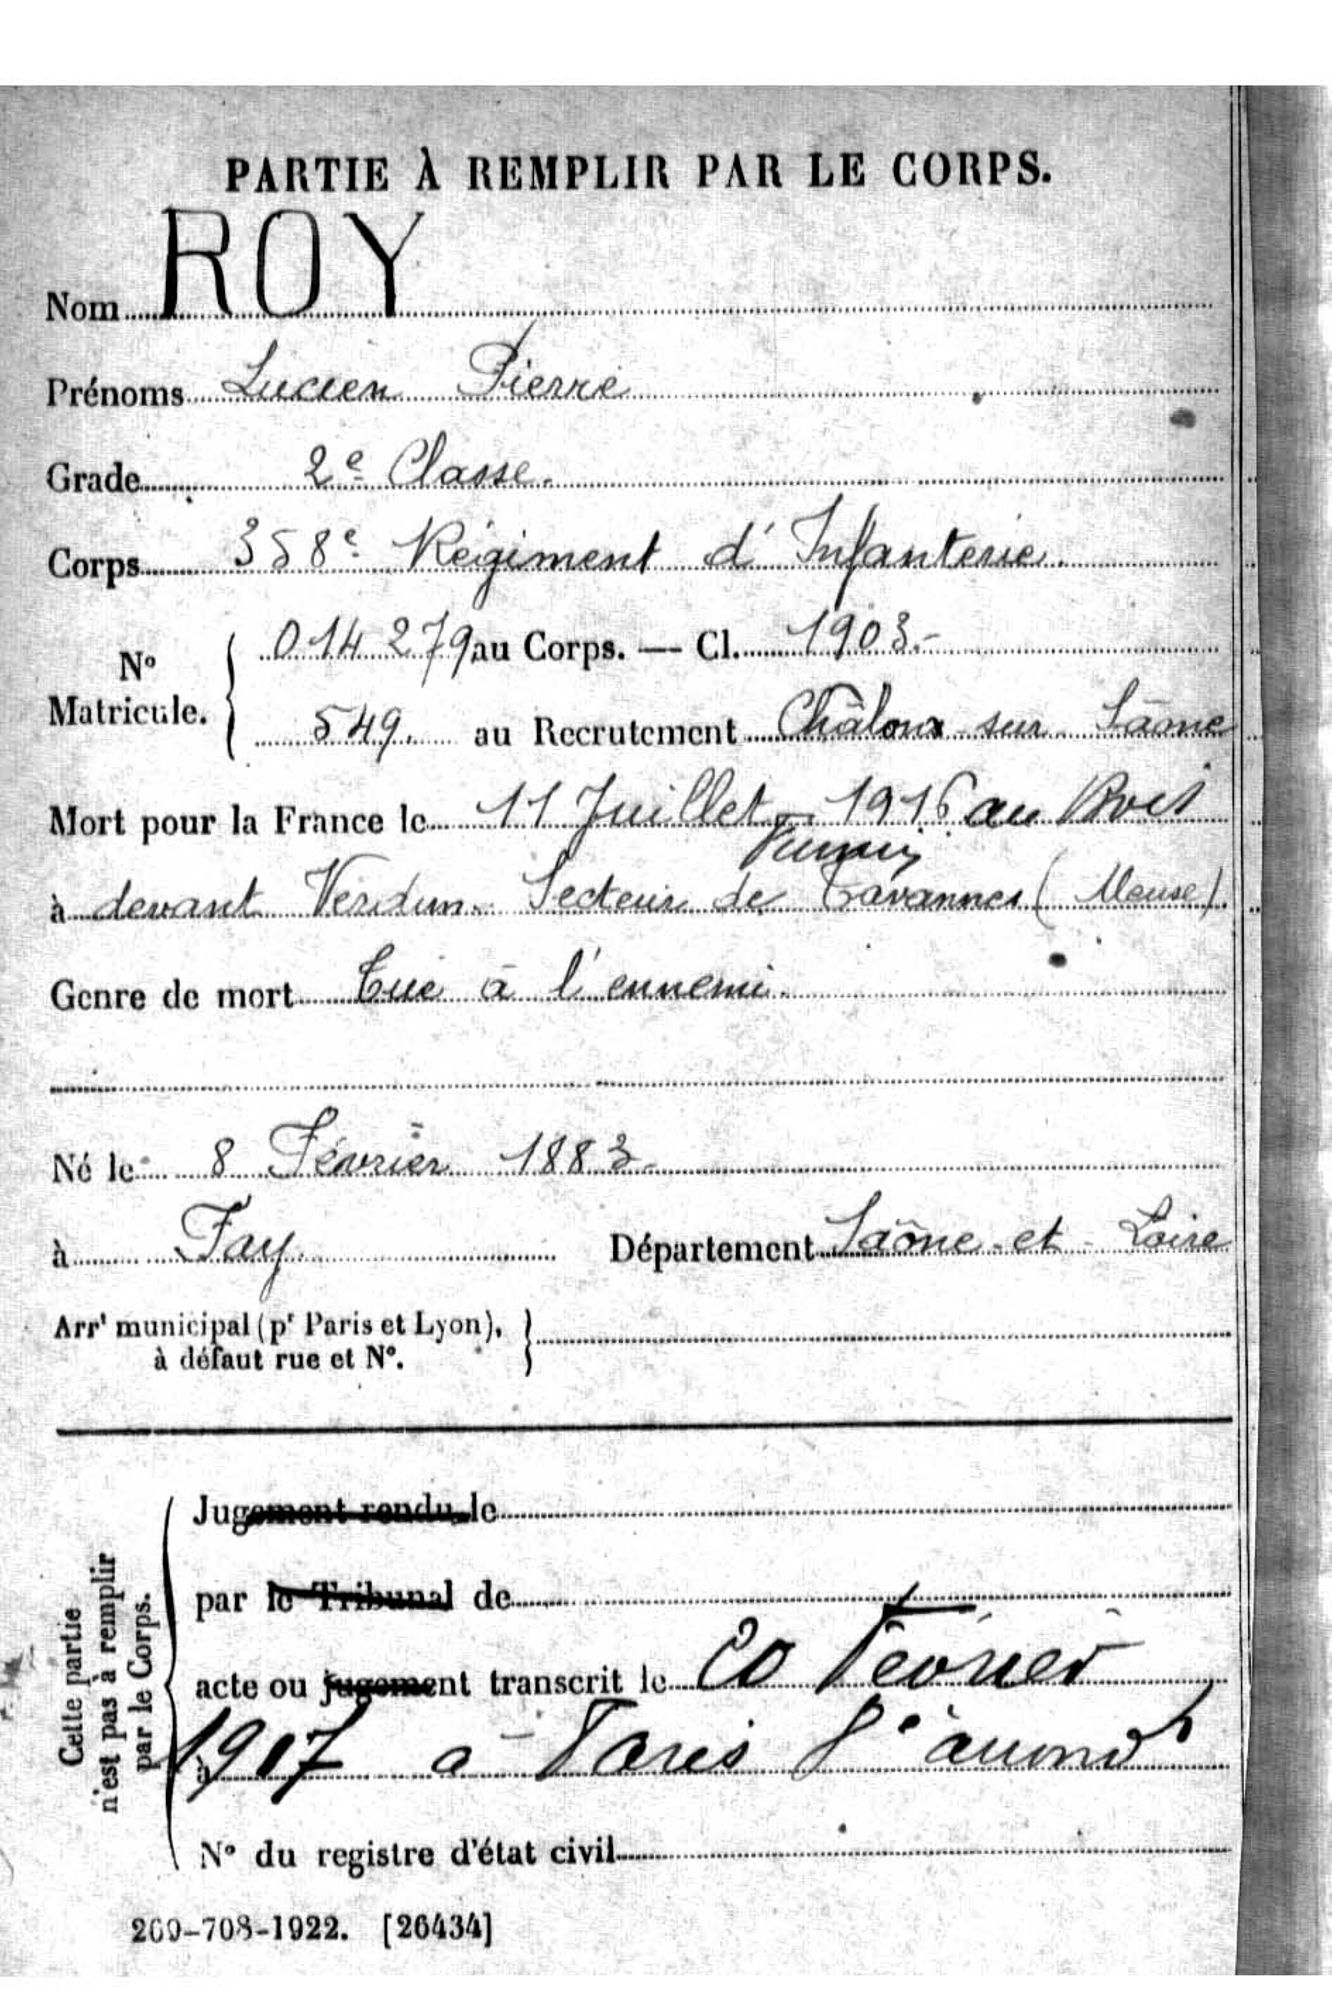 PARTIE À REMPLIR PAR LE CORPS.
Nom ROY
Prénoms Lucien Pierre
Grade 2e Classe.
Corps 358e Régiment d'Infanterie.
N° Matricule. 014279 au Corps. — Cl. 1903.-
549. au Recrutement Châlons sur Saône
Mort pour la France le 11 Juillet 1916 au Bois
Fumin
à devant Verdun. Secteur de Tavannes (Meuse).
Genre de mort Tué à l'ennemi.
Né le 8 Février 1883
à Fay Département Saône-et-Loire
Arrt municipal (pr Paris et Lyon),
à défaut rue et N°.
Cette partie
n'est pas à remplir
par le Corps.
Jugement rendu le
par le Tribunal de
acte ou jugement transcrit le 20 Février
1917 à Paris
N° du registre d'état civil
269-708-1922. [26434]